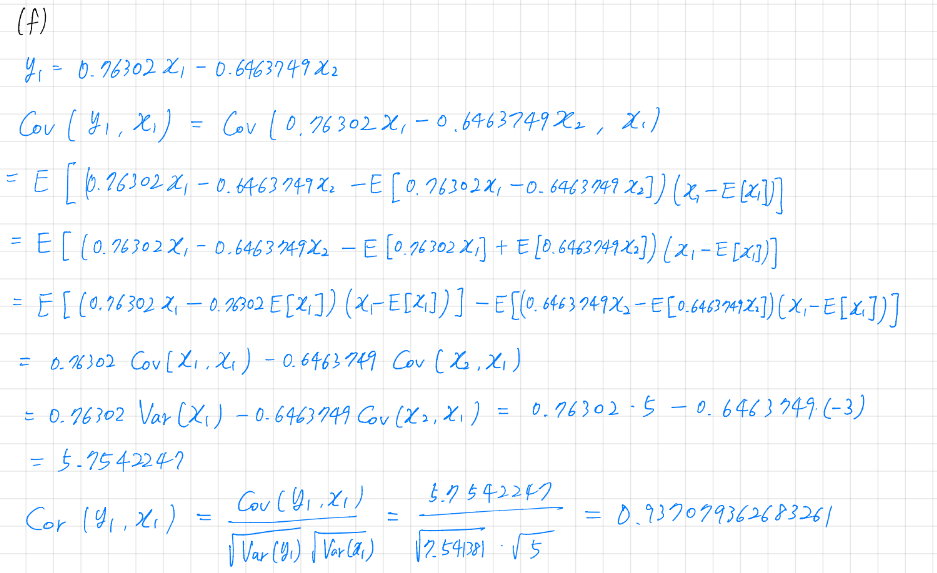 (f)
y₁ = 0.76302 x₁ - 0.6463749 x₂
Cov ( y₁ , x₁ ) = Cov ( 0.76302 x₁ - 0.6463749 x₂ , x₁ )
= E [ (0.76302 x₁ - 0.6463749 x₂ - E [ 0.76302 x₁ - 0.6463749 x₂ ] ) ( x₁ - E[x₁] ) ]
= E [ ( 0.76302 x₁ - 0.6463749 x₂ - E [ 0.76302 x₁ ] + E [ 0.6463749 x₂ ] ) ( x₁ - E[x₁] ) ]
= E [ ( 0.76302 x₁ - 0.76302 E[x₁] ) ( x₁ - E[x₁] ) ] - E[ ( 0.6463749 x₂ - E[0.6463749 x₂] ) ( x₁ - E[x₁] ) ]
= 0.76302 Cov ( x₁ , x₁ ) - 0.6463749 Cov ( x₂ , x₁ )
= 0.76302 Var ( x₁ ) - 0.6463749 Cov ( x₂ , x₁ ) = 0.76302 · 5 - 0.6463749 · (-3)
= 5.7542247
Cor ( y₁ , x₁ ) = Cov ( y₁ , x₁ ) / √Var(y₁) √Var(x₁) = 5.7542247 / √7.541381 · √5 = 0.937079362683261